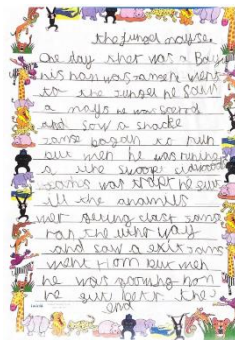 the jungel nayse.
One day ther was a Boy
his nas was James went
to the Jungel he saw
a nays he was scerd
and saw a snacke
Jamse bagan to run
but wen he was runing
a
was he sur
ill the anamils
wer geting clast Jamse
ran the uthe way
and saw a exit Jams
went hom but wen
he was gowing hom
he gut bete the
end